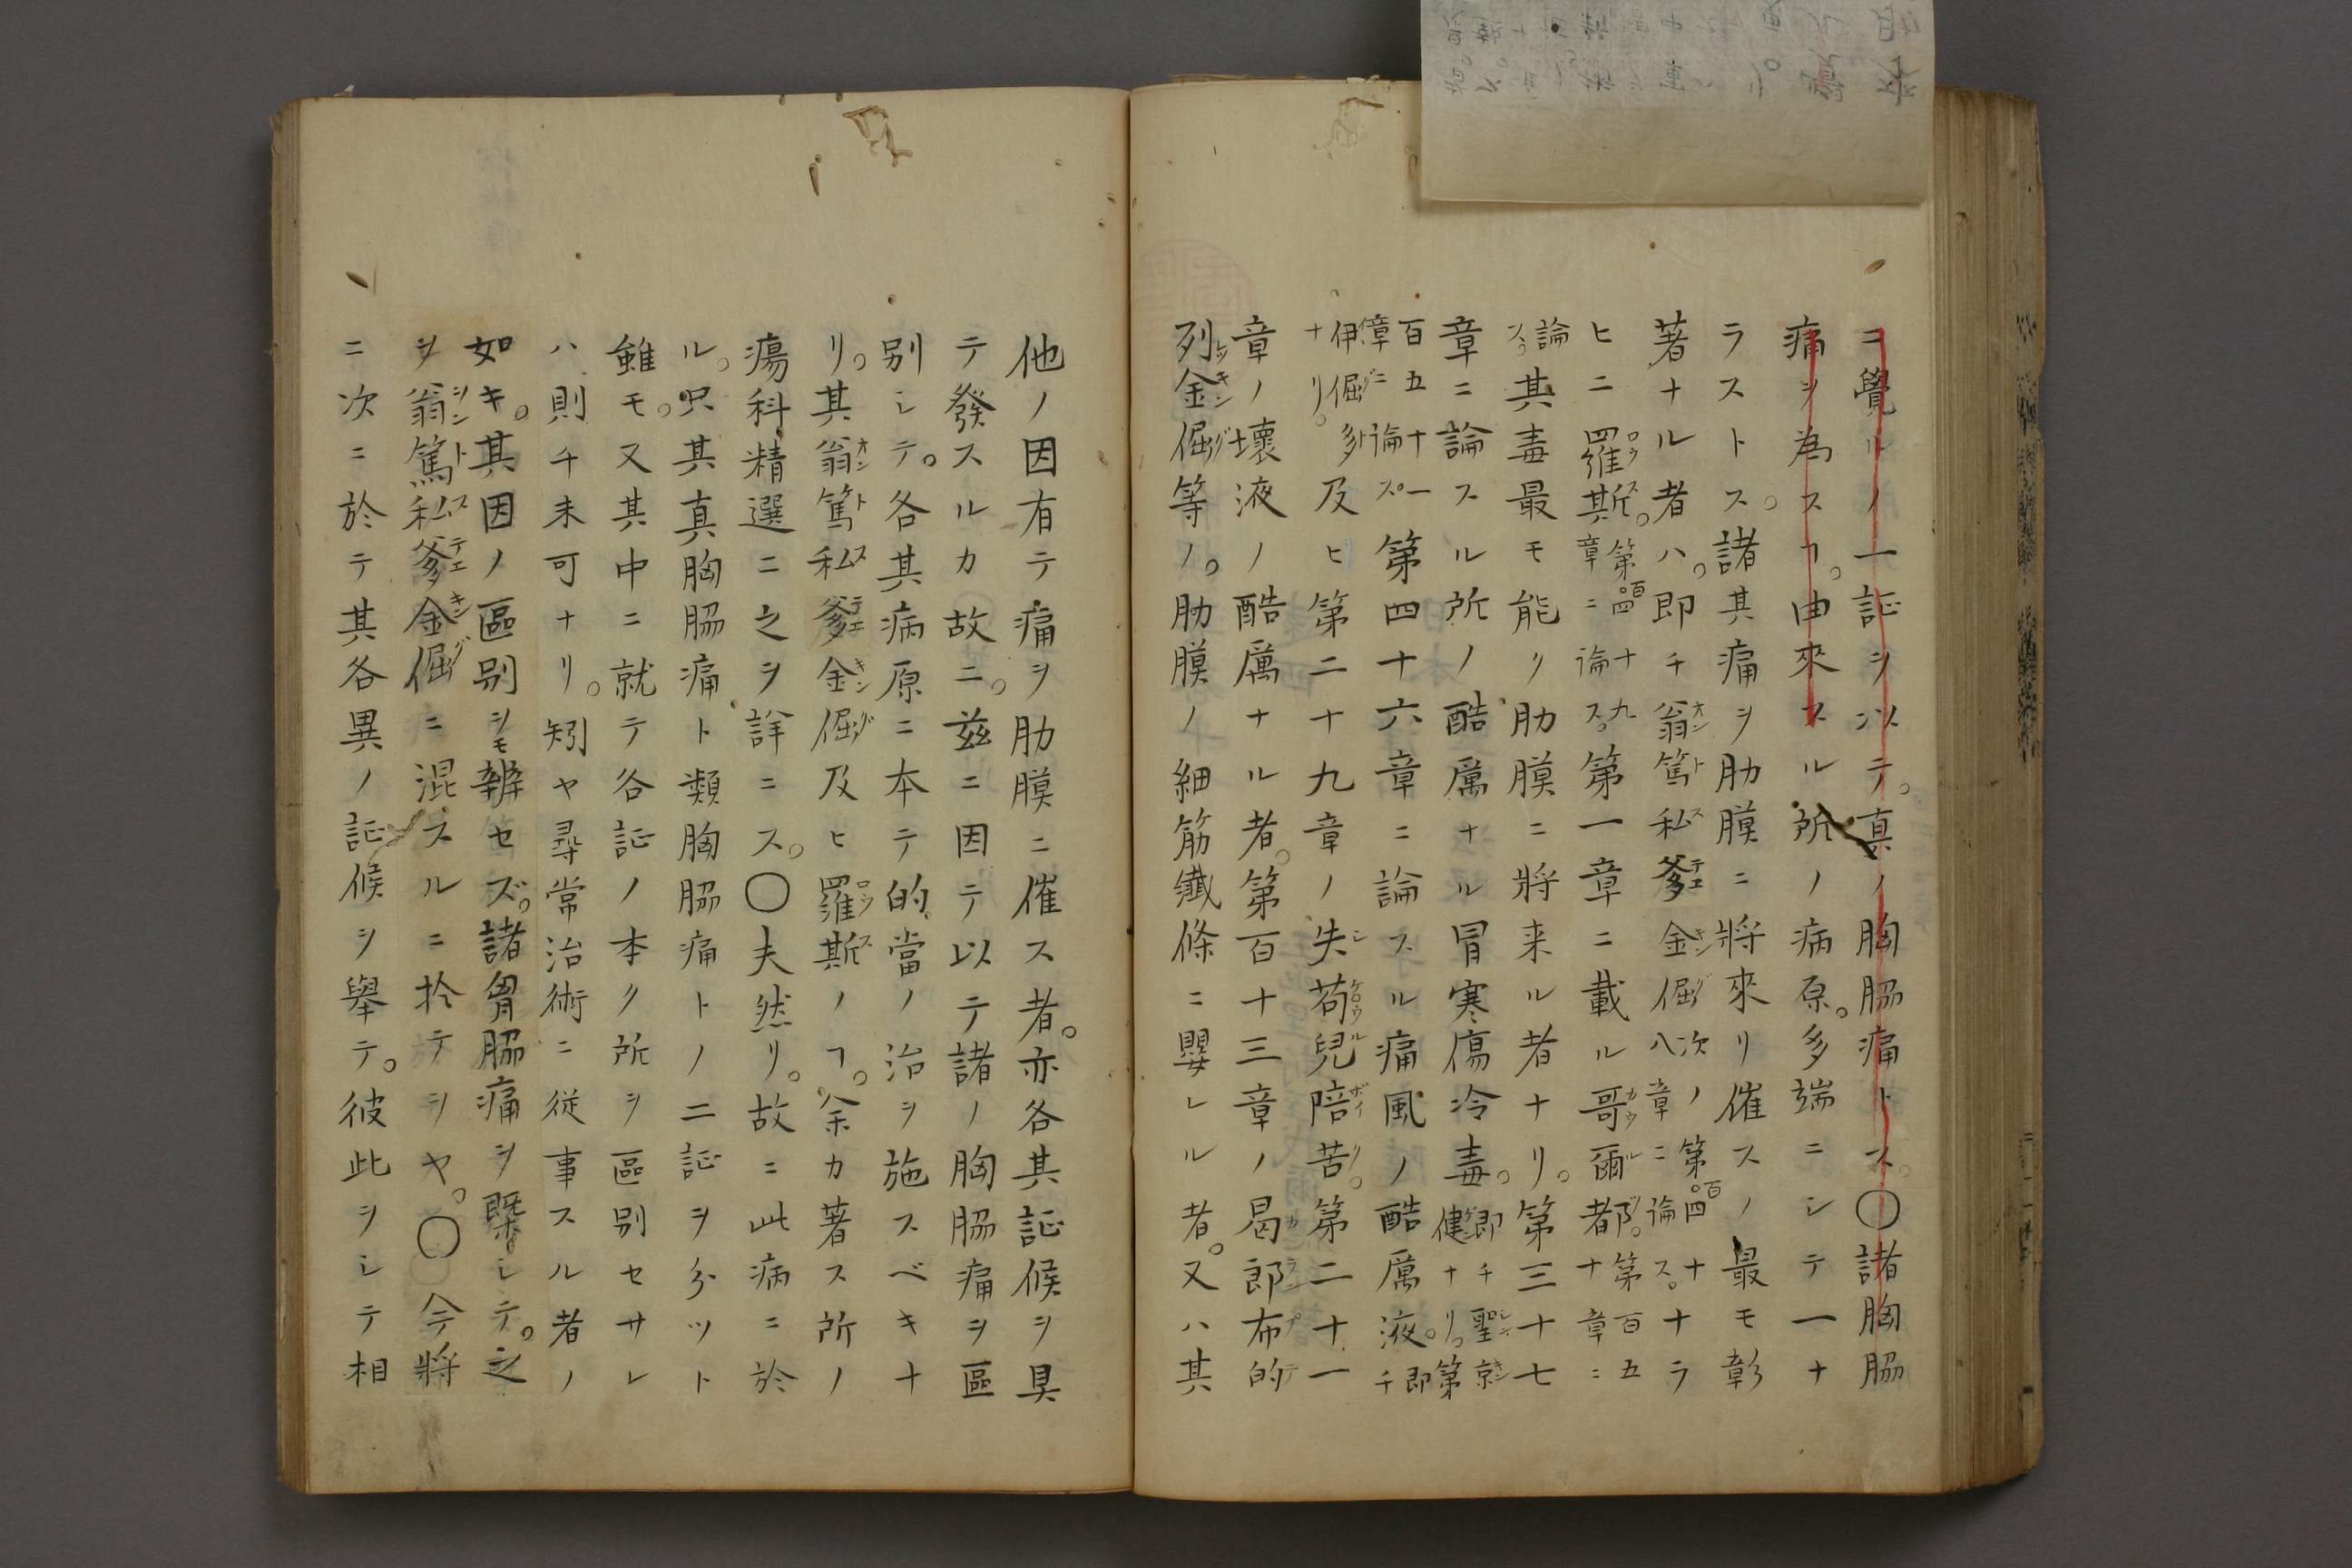 ニ覺ルノ一証ヲ以テ。真ノ胸脇痛トス。〇諸胸脇
痛ヲ為スヿ。由來スル所ノ病原。多端ニシテ一ナ
ラストス。諸其痛ヲ肋膜ニ將來リ催スノ最モ彰
著ナル者ハ。即チ翁篤私爹金倔次ノ第百四十八章ニ論ス。ナラ
ヒニ羅斯。第百四十九章ニ論ス。第一章ニ載ル哥爾都。第百五十章ニ
論ス。其毒最モ能ク肋膜ニ將来ル者ナリ。第三十七
章ニ論スル所ノ酷厲ナル冒寒傷冷毒。即チ聖京健ナリ。第
百五十一章ニ論ス。第四十六章ニ論スル痛風ノ酷厲液。即チ
伊倔多ナリ。及ヒ第二十九章ノ失苟兒陪苦。第二十一
章ノ壞液ノ酷厲ナル者。第百十三章ノ曷郎布的
列金倔等ノ。肋膜ノ細筋纎條ニ嬰レル者。又ハ其
他ノ因有テ痛ヲ肋膜ニ催ス者。亦各其証候ヲ具
テ發スルカ故ニ。茲ニ因テ以テ諸ノ胸脇痛ヲ區
別シテ。各其病原ニ本テ的當ノ治ヲ施スベキナ
リ。其翁篤私爹金倔及ヒ羅斯ノヿ。余カ著ス所ノ
瘍科精選ニ之ヲ詳ニス。〇夫然リ。故ニ此病ニ於
ル。只其真胸脇痛ト類胸脇痛トノ二証ヲ分ツト
雖モ。又其中ニ就テ各証ノ本ク所ヲ區別セサレ
ハ則チ未可ナリ。矧ヤ尋常治術ニ従事スル者ノ
如キ。其因ノ區別シモ辨セズ。諸胷脇痛ヲ槩シテ。之
ヲ翁篤私爹金倔ニ混スルニ於テヲヤ。〇今將
ニ次ニ於テ其各異ノ証候ヲ舉テ。彼此ヲシテ相